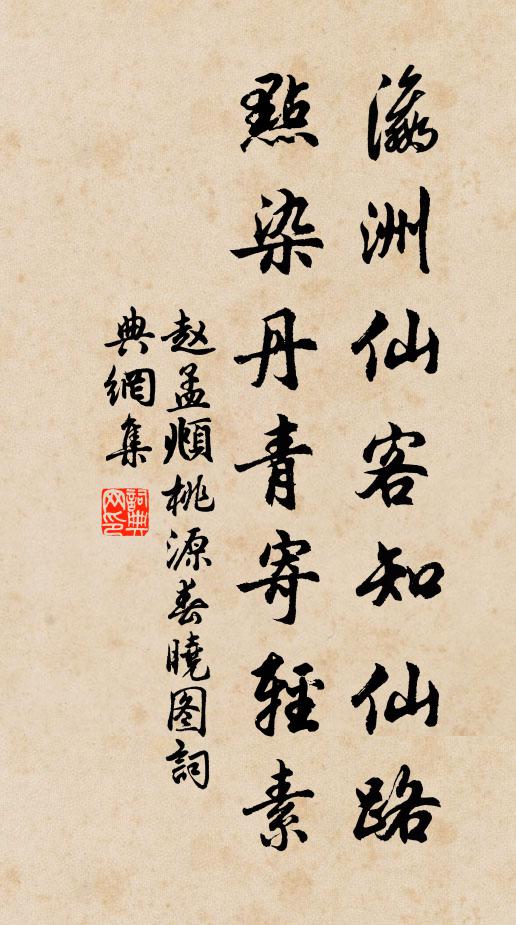 瀛洲仙客知仙路
點染丹青寄輕素
赵孟頫桃源春曉图詞
典網集
詞典網印